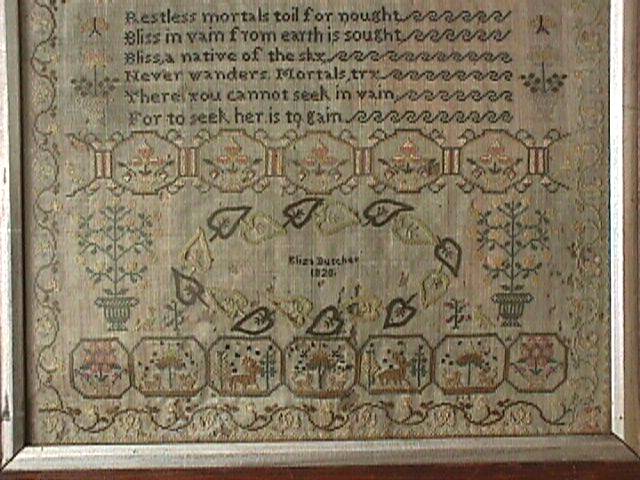 Restless mortals toil for nought
Bliss in vain from earth is sought
Bliss, a native of the sky
Never wanders. Mortals, try
There you cannot seek in vain
For to seek her is to gain
Eliza Butcher
1820